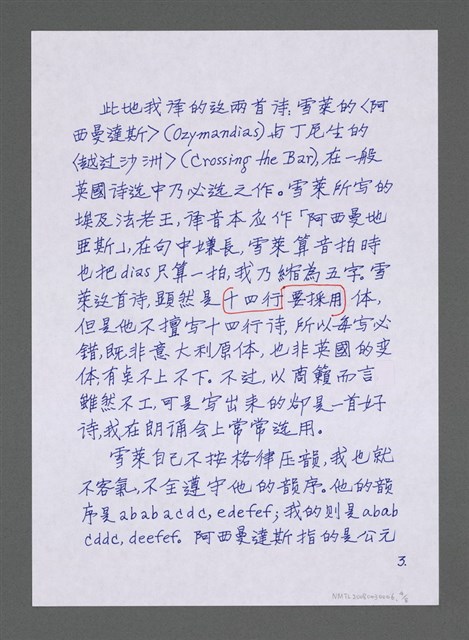 此地我译的这兩首诗：雪萊的〈阿
西曼達斯〉(Ozymandias)与丁尼生的
〈越过沙洲〉(Crossing the Bar),在一般
英國诗选中乃必选之作。雪萊所写的
埃及法老王，译音本应作「阿西曼地
亞斯」，在句中嫌長，雪萊算音拍時
也把dias只算一拍，我乃縮為五字。雪
萊这首诗，顯然是十四行要採用体，
但是他不擅写十四行诗，所以每写必
错，既非意大利原体，也非英國的变
体，有点不上不下。不过，以商籟而言
雖然不工，可是写出來的卻是一首好
诗，我在朗诵会上常常选用。
雪萊自己不按格律压韻，我也就
不客氣，不全遵守他的韻序。他的韻
序是ababacdc, edefef；我的則是abab
cddc, deefef. 阿西曼達斯指的是公元
3.